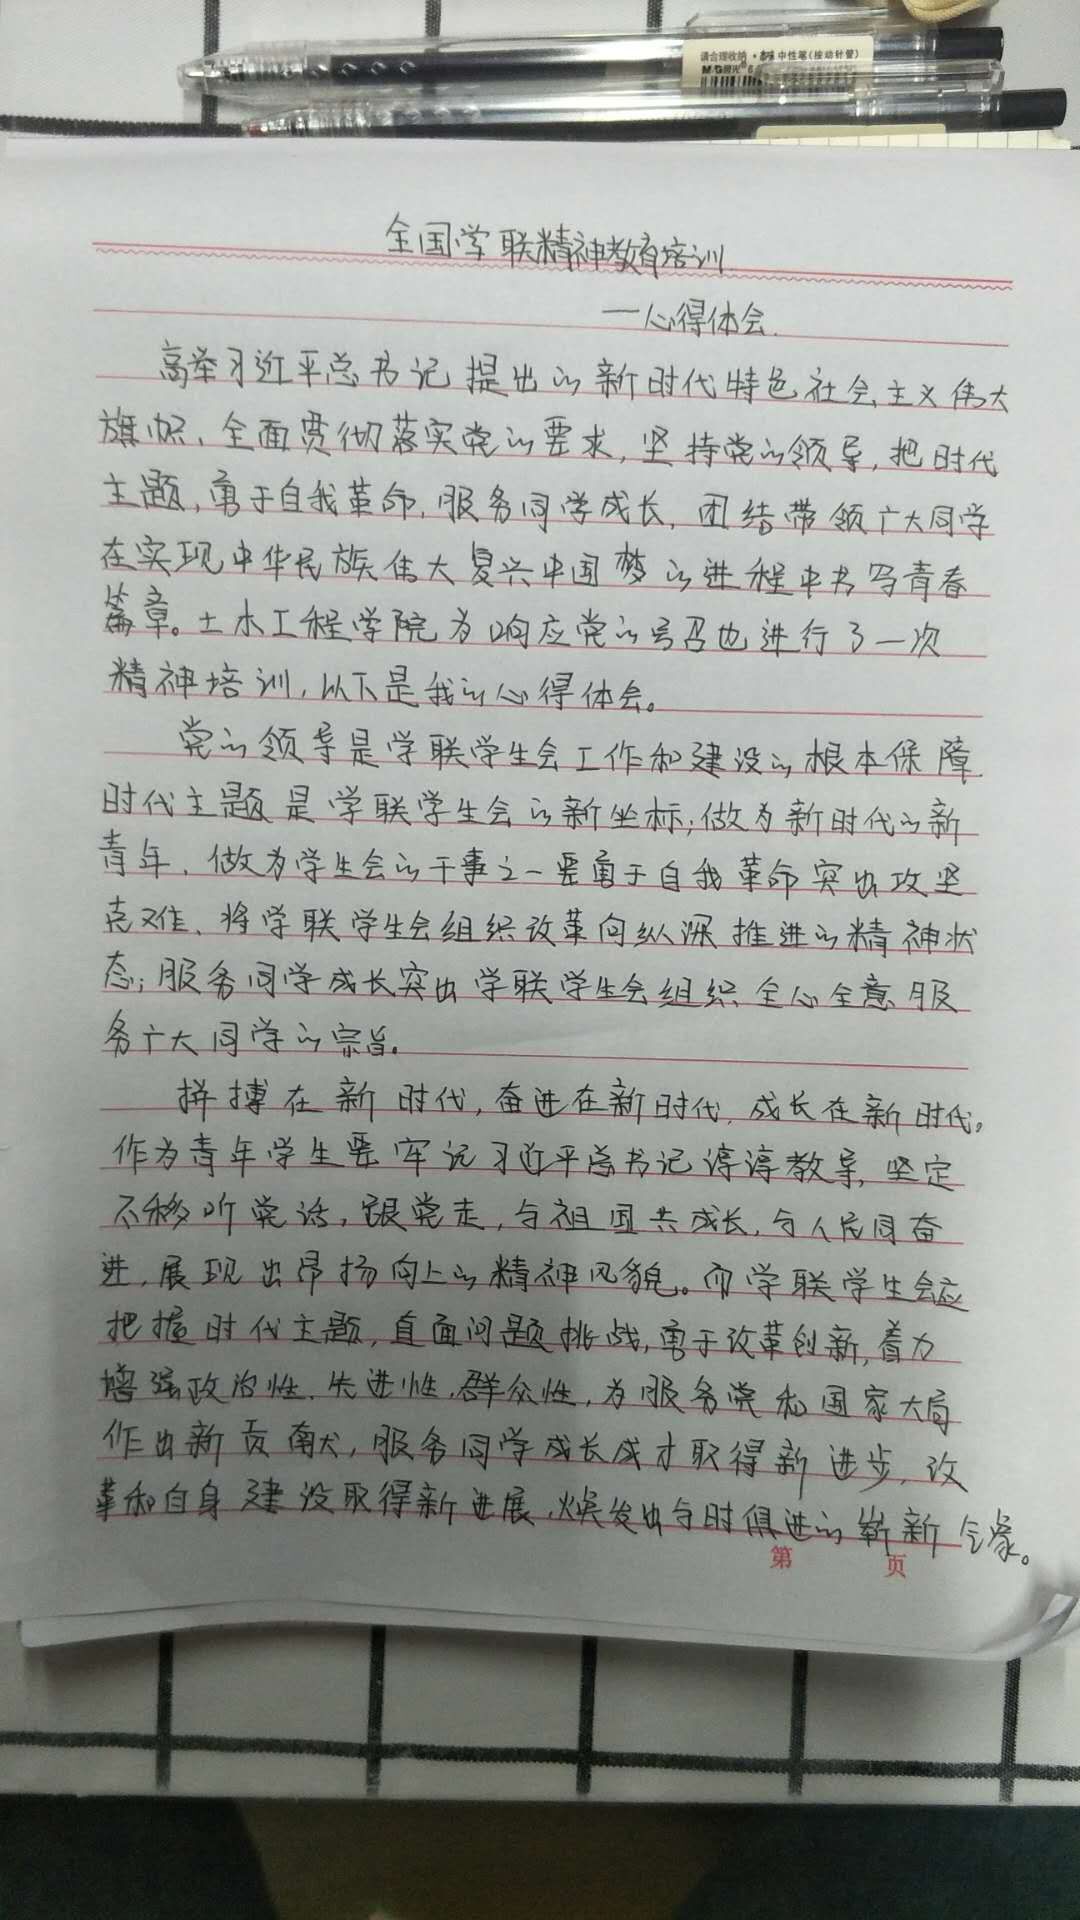 请合理收纳·本味中性笔(按动针管)
M&G晨光
全国学联精神教育培训
一心得体会.
高举习近平总书记提出的新时代特色社会主义伟大
旗帜、全面贯彻落实党的要求,坚持党的领导,把时代
主题,勇于自我革命,服务同学成长,团结带领广大同学
在实现中华民族伟大复兴中国梦的进程中书写青春
篇章。土木工程学院为响应党的号召也进行了一次
精神培训,以下是我的心得体会。
党的领导是学联学生会工作和建设的根本保障
时代主题是学联学生会的新坐标;做为新时代的新
青年、做为学生会的干事之一要勇于自我革命突出攻坚
克难、将学联学生会组织改革向纵深推进的精神状
态;服务同学成长突出学联学生会组织全心全意服
务广大同学的宗旨。
拼搏在新时代,奋进在新时代,成长在新时代。
作为青年学生要牢记习近平总书记谆谆教导,坚定
不移听党话,跟党走,与祖国共成长,与人民同奋
进,展现出昂扬向上的精神风貌。而学联学生会应
把握时代主题,直面问题挑战,勇于改革创新,着力
增强政治性、先进性、群众性,为服务党和国家大局
作出新贡献,服务同学成长成才取得新进步,改
革和自身建设取得新进展、焕发出与时俱进的崭新气象。
第 页